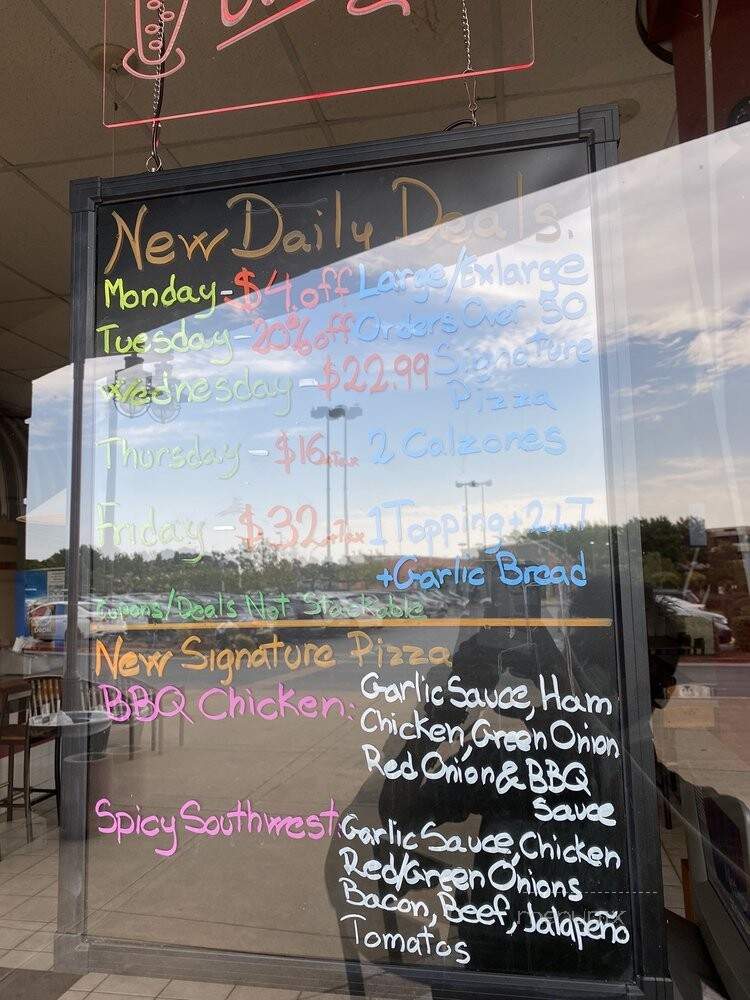 New Daily Deals.
Monday - $4 off Large/Exlarge
Tuesday - 20% off Orders Over 50
Wednesday - $22.99 Signature
Pizza
Thursday - $16+Tax 2 Calzones
Friday - $32+Tax 1 Topping + 2 LT
+Garlic Bread
Coupons/Deals Not Stackable
New Signature Pizza
BBQ Chicken: Garlic Sauce, Ham
Chicken, Green Onion
Red Onion & BBQ
Sauce
Spicy Southwest: Garlic Sauce, Chicken
Red/Green Onions
Bacon, Beef, Jalapeño
Tomatos